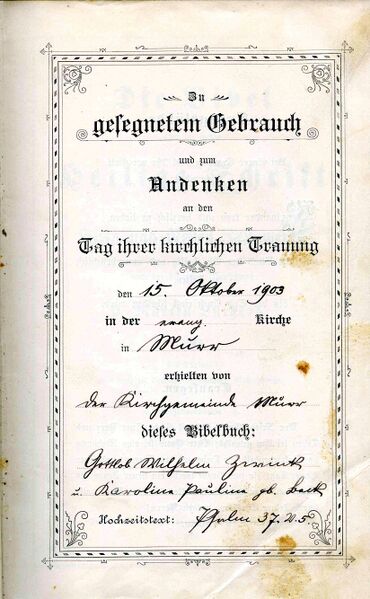 Zu
gesegnetem Gebrauch
und zum
Andenken
an den
Tag ihrer kirchlichen Trauung
den 15. Oktober 1903
in der evang. Kirche
in Murr
erhielten von
der Kirchgemeinde Murr
dieses Bibelbuch:
Gottlob Wilhelm Zwink
u. Karoline Pauline gb. Beck
Hochzeitstext: Psalm 37. V. 5.